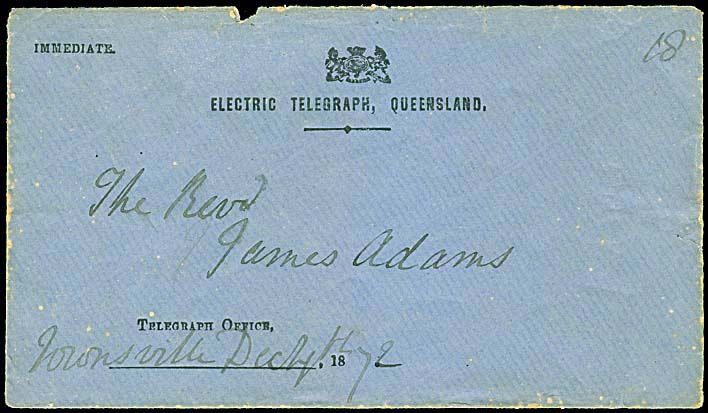 IMMEDIATE.
18
ELECTRIC TELEGRAPH, QUEENSLAND.
The Revd
James Adams
TELEGRAPH OFFICE,
Townsville , 1872